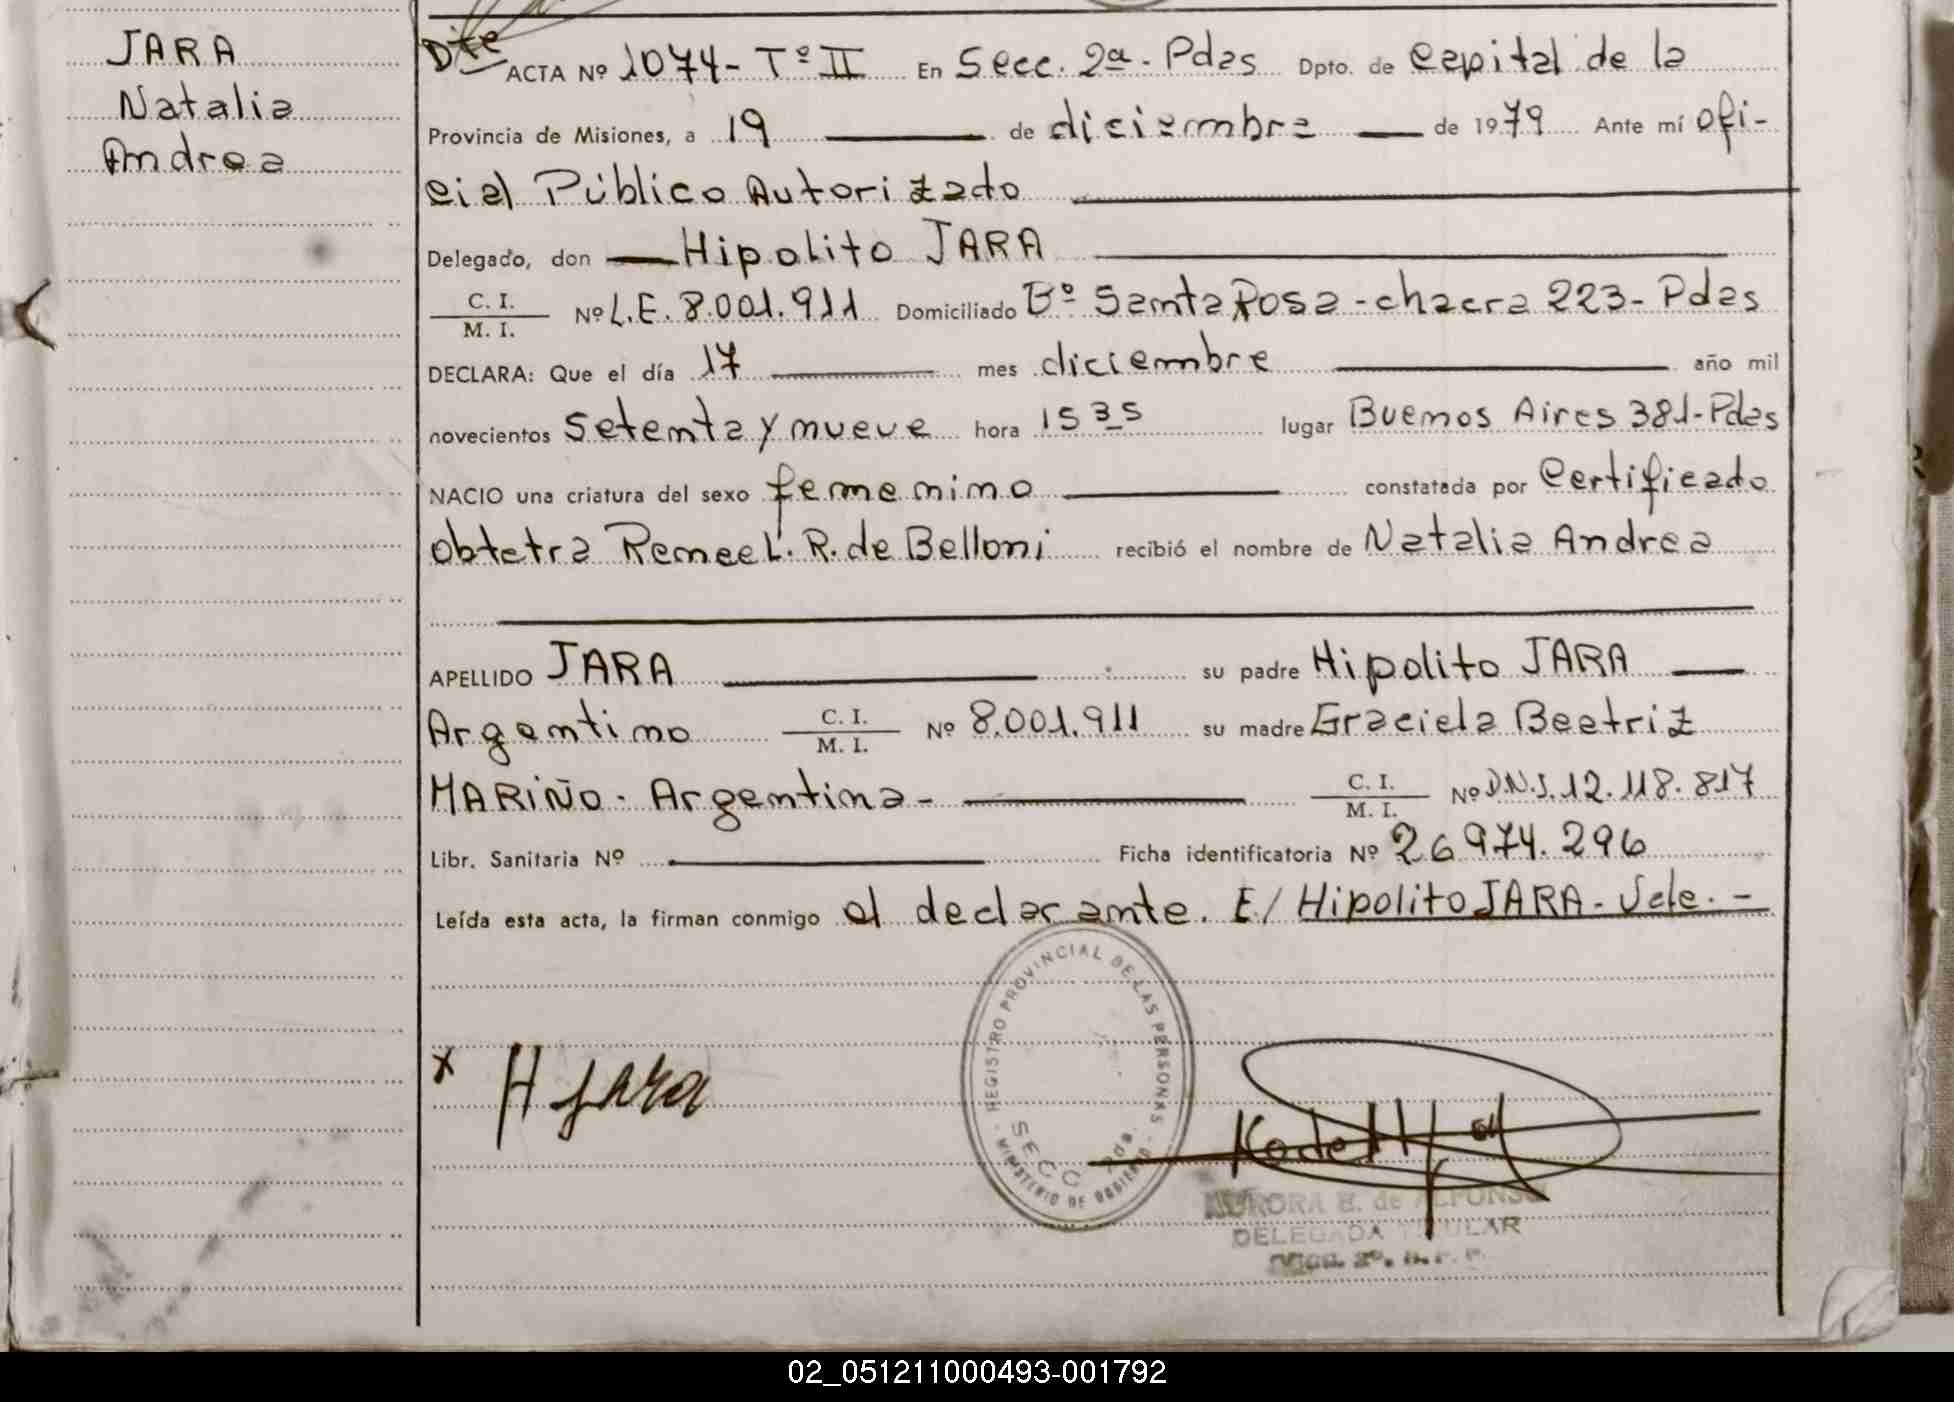 JARA
Natalia
Andrea
Dte
ACTA Nº 1074- Tº II En Secc. 2ª - Pdas Dpto. de Capital de la
Provincia de Misiones, a 19 de diciembre de 1979 Ante mí ofi-
cial Público Autorizado
Delegado, don Hipolito JARA
C. I.
M. I. Nº L.E. 8.001.911 Domiciliado Bº Santa Rosa - chacra 223 - Pdas
DECLARA: Que el día 17 mes diciembre año mil
novecientos setenta y nueve hora 15 35 lugar Buenos Aires 381-Pdas
NACIO una criatura del sexo femenino constatada por Certificado
obtetra Renee L. R. de Belloni recibió el nombre de Natalia Andrea
APELLIDO JARA su padre Hipolito JARA
Argentino C. I. M. I. Nº 8.001.911 su madre Graciela Beatriz
MARIÑO - Argentina - C. I. M. I. Nº D.N.I. 12.118.817
Libr. Sanitaria Nº Ficha identificatoria Nº 26974.296
Leída esta acta, la firman conmigo el declarante. E/ Hipolito JARA - Vale. -
REGISTRO PROVINCIAL DE LAS PERSONAS
SECC Pdas.
MINISTERIO DE GOBIERNO
x H Jara
AURORA E. de ALFONSO
DELEGADA TITULAR
02_051211000493-001792